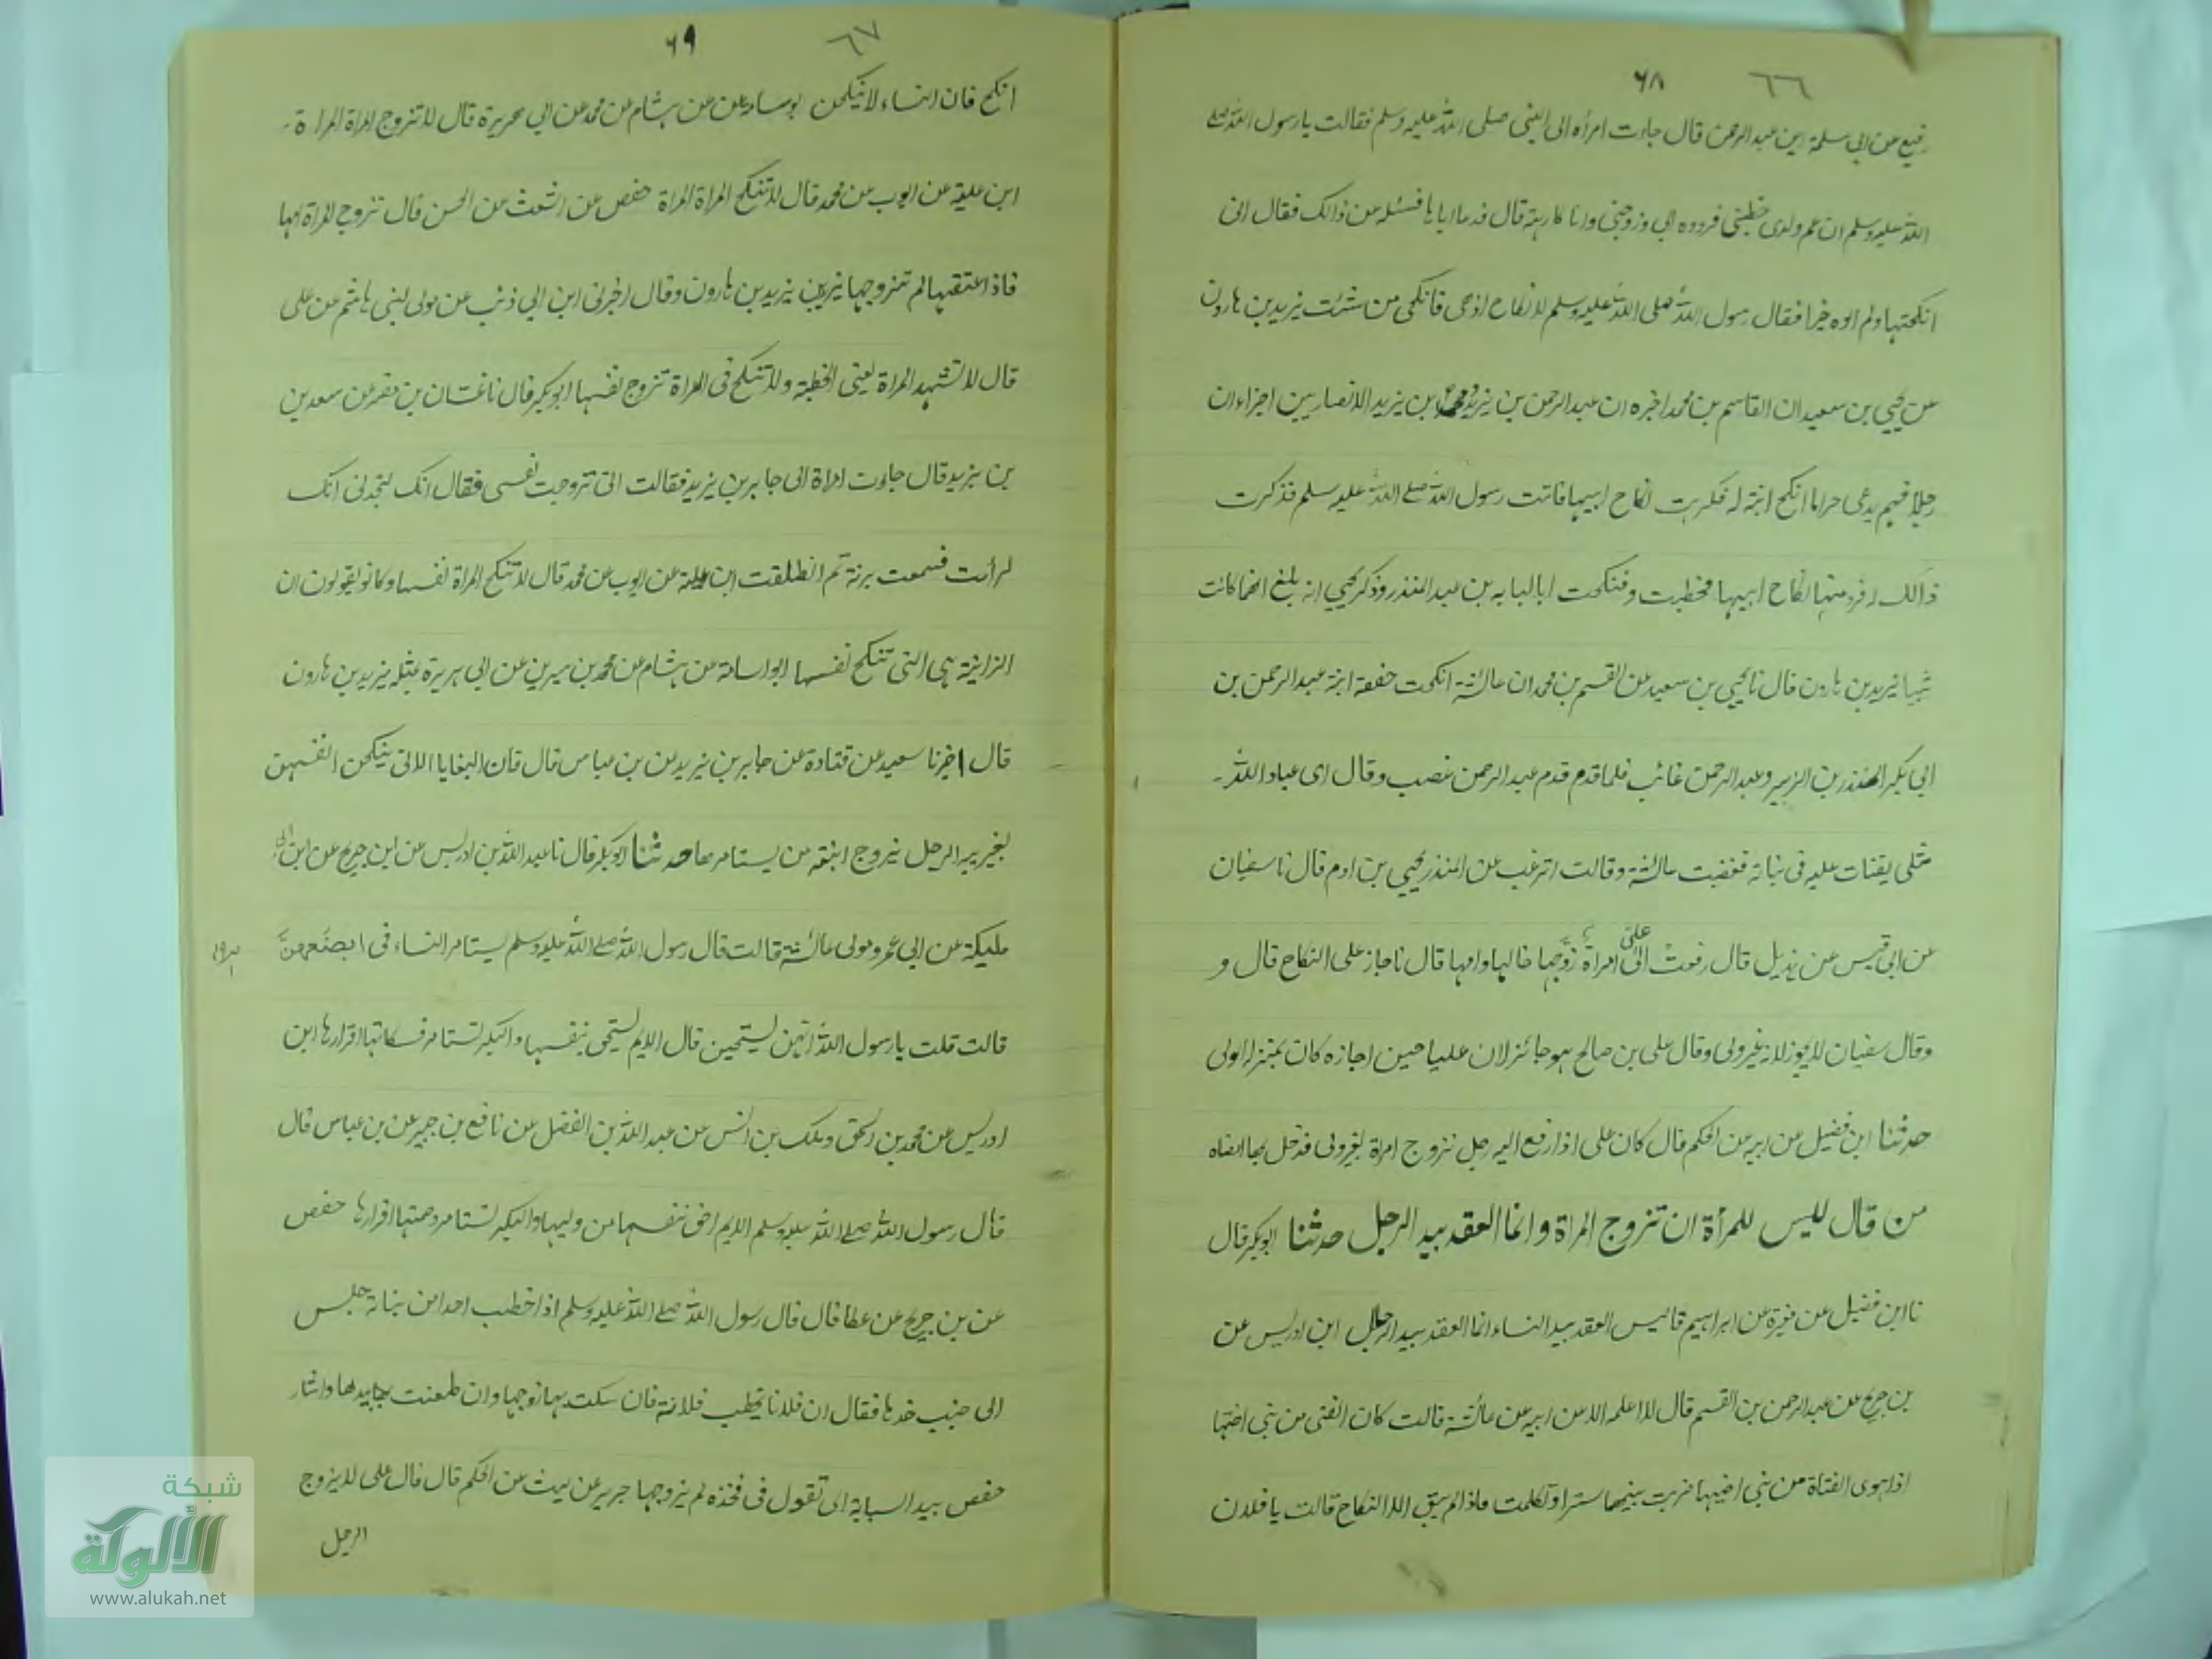 ٦٦ ۶۸
رفيع عن ابي سلمة ابن عبد الرحمن قال جاءت امرأه الى النبي صلى الله عليه وسلم فقالت يا رسول الله صلى
الله عليه وسلم ان عم ولدى خطبني فرده ابي وزوجني وانا كارهة قال فدعا اباها فسئله عن ذالك فقال اني
انكحتها ولم اوه خيرا فقال رسول الله صلى الله عليه وسلم لا نكاح اذهبى فانكحى من شئت يزيد بن هارون
عن يحيى بن سعيد ان القاسم بن محمد اخبره ان عبد الرحمن بن يزيد ومجمع ابن يزيد الانصاريين اخبراه ان
رجلا فيهم يدعى حراما انكح ابنة له فكرهت نكاح ابيها فاتت رسول الله صلے الله عليه وسلم فذكرت
ذالك له فرد منها نكاح ابيها فخطبت وفنكحت ابا لبابه بن عبد المنذر وذكر يحيى انه بلغ انها كانت
ثيبا يزيد بن هارون قال نا يحيى بن سعيد عن القسم بن محمد ان عائشة انكحت حفصة ابنة عبد الرحمن بن
ابي بكر المنذر بن الزبير وعبد الرحمن غائب فلما قدم قدم عبد الرحمن غضب وقال اى عباد الله۔
مثلى يفتات عليه فى بناته فغضبت عائشة وقالت اترغب عن المنذر يحيى بن ادم قال نا سفيان
عن ابي قيس عن هذيل قال رفعت الى على امراة زوجها خالها وامها قال فاجاز على النكاح قال و
وقال سفيان لا يجوز لانه غير ولى وقال على بن صالح هو جائز لان عليا حين اجازه كان بمنزله الولى
حدثنا ابن فضيل عن ابيه عن الحكم قال كان على اذا رفع اليه رجل تزوج امراة بغير ولى فدخل بها امضاه
من قال ليس للمرأة ان تزوج المراة وانما العقد بيد الرجل حدثنا ابوبكر قال
نا ابن فضيل عن مغيرة عن ابراهيم قاليس العقد بيد النساء انما العقد بيد الرجال ابن ادريس عن
بن جريج عن عبد الرحمن بن القسم قال لا اعلمه الا عن ابيه عن عائشة قالت كان الفتى من بنى اختها
اذا هوى الفتاة من بنى اخيها ضربت بينهما سترا وتكلمت فاذا لم يبق الا النكاح قالت يا فلان
٦٧ ۶۹
انكح فان النساء لا ينكحن بوسامة عن عن هشام عن محمد عن ابي هريرة قال لا تزوج المراة المراة۔
ابن علية عن ايوب عن محمد قال لا تنكح المراة المراة حفص عن اشعث عن الحسن قال تزوج المراة امها
فاذا اعتقها لم تزوجها يزيد بن هارون وقال اخبرنى ابن ابي ذئب عن مولى لبنى هاشم عن على
قال لا تشهد المراة يعنى الخطبة ولا تنكح فى المراة تزوج نفسها ابوبكر قال نا غسان بن مضر عن سعد بن
بن يزيد قال جاءت امراة الى جابر بن يزيد فقالت انى تزوجت نفسى فقال انك لتحدثى انك
فسمعت برنة ثم انطلقت ابن علية عن ايوب عن محمد قال لا تنكح المراة نفسها وكانو يقولون ان
الزانية هى التى تنكح نفسها ابو اسامة عن هشام عن محمد بن سيرين عن ابي هريرة بمثله يزيد بن هارون
قال اخبرنا سعيد عن قتادة عن جابر بن يزيد عن بن عباس قال فان البغايا الاتى ينكحن انفسهن
بغير الرجل يزوج ابنته من يستامرها حدثنا ابوبكر قال نا عبد الله بن ادريس عن ابن جريج عن ابن ابى
مليكة عن ابي عمرو مولى عائشة قالت قال رسول الله صلے الله عليه وسلم يستامر النساء فى ابضعهن
قالت قلت يا رسول الله انهن يستحيين قال الايم تستحى بنفسها والبكر تستامر فسكاتها اقرارها ابن
ادريس عن محمد بن اسحق وملك بن انس عن عبد الله بن الفضل عن نافع بن جبير عن بن عباس قال
قال رسول الله صلے الله عليه وسلم الايم احق بنفسها من وليها والبكر تستامر وصمتها اقرارها حفص
عن بن جريج عن عطا قال قال رسول الله صلے الله عليه وسلم اذا خطب احدا من بناته جلس
الى جنب خدرها فقال ان فلانا يخطب فلانة فان سكتت بها زوجها وان طعنت بيدها واشار
حفص بيد السبابة اى تقول فى فخذه لم يزوجها جرير عن ليث عن الحكم قال قال على لا يزوج
الرجل
شبكة
الألوكة
www.alukah.net